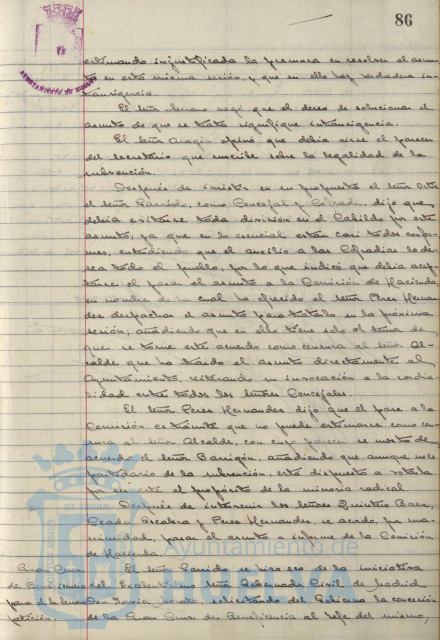 86
AYUNTAMIENTO DE HUELVA
estimando injustificada la premura en resolver el asun-
to en esta misma sesión, y que en ello hay verdadera in-
transigencia.
El señor negó que el deseo de solucionar el
asunto de que se trata signifique intransigencia.
El señor Aragón opinó que debía oirse el parecer
del Secretario que suscribe sobre la legalidad de la
subvención.
Después de insistir en su propuesta el señor
el señor Garrido, como Concejal y Cofrade, dijo que
debía evitarse toda división en el Cabildo por este
asunto, ya que en lo esencial están casi todos confor-
mes, entendiendo que el auxilio a las Cofradías lo de-
sea todo el pueblo, por lo que indicó que debía acep-
tarse el pasar el asunto a la Comisión de Hacienda,
en nombre de la cual ha ofrecido el señor Perez Hernan-
dez despachar el asunto para tratarlo en la próxima
sesión; añadiendo que en ello tiene solo el temor de
que se tome este acuerdo como censura al señor Al-
calde que ha traido el asunto directamente al
Ayuntamiento, reiterando su invocación a la cordia-
lidad entre todos los señores Concejales.
El señor Perez Hernandez dijo que el pase a la
Comisión es trámite que no puede estimarse como cen-
sura al señor Alcalde, con cuyo parecer se mostró de
acuerdo el señor Barrigón, añadiendo que aunque no es
partidario de la subvención, está dispuesto a votarla
por ser el propósito de la minoría radical.
Después de intervenir los señores Quintero Baez,
Perez Hernandez, se acordó, por una-
nimidad, pasar el asunto a informe de la Comisión
de Hacienda.
Gran Cruz
de Beneficencia
petición.
El señor Garrido se hizo eco de la iniciativa
del Excelentísimo señor Gobernador Civil de Madrid
Don Javier solicitando del Gobierno la concesión
de la Gran Cruz de Beneficencia al Jefe del mismo,
Ayuntamiento de